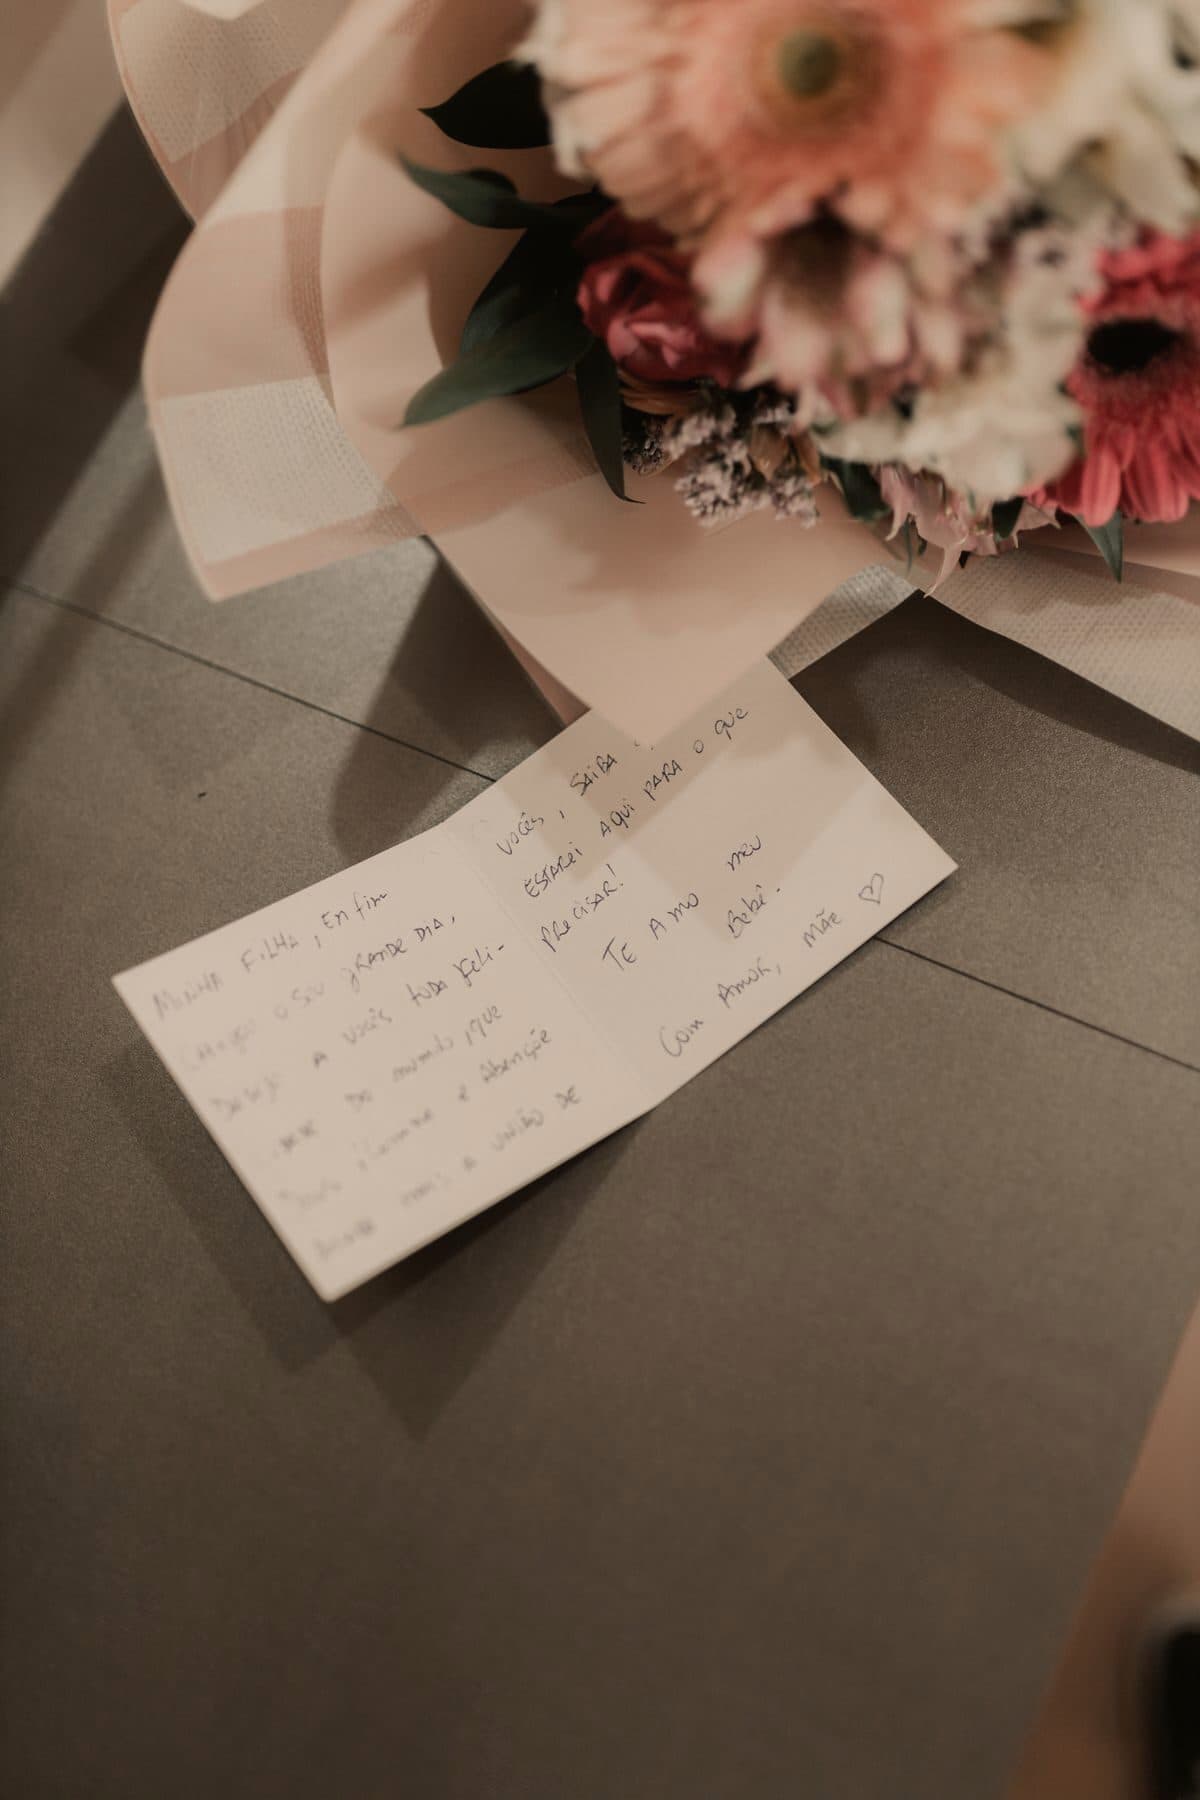 MINHA FILHA, ENFIM
CHEGOU O SEU GRANDE DIA,
DESEJO A VOCÊS TODA FELI-
DADE DO MUNDO, QUE
DEUS ILUMINE E ABENÇOE
AINDA MAIS A UNIÃO DE
VOCÊS, SAIBA
ESTAREI AQUI PARA O QUE
PRECISAR!
TE AMO MEU
BEBÊ.
COM AMOR, MÃE ♡